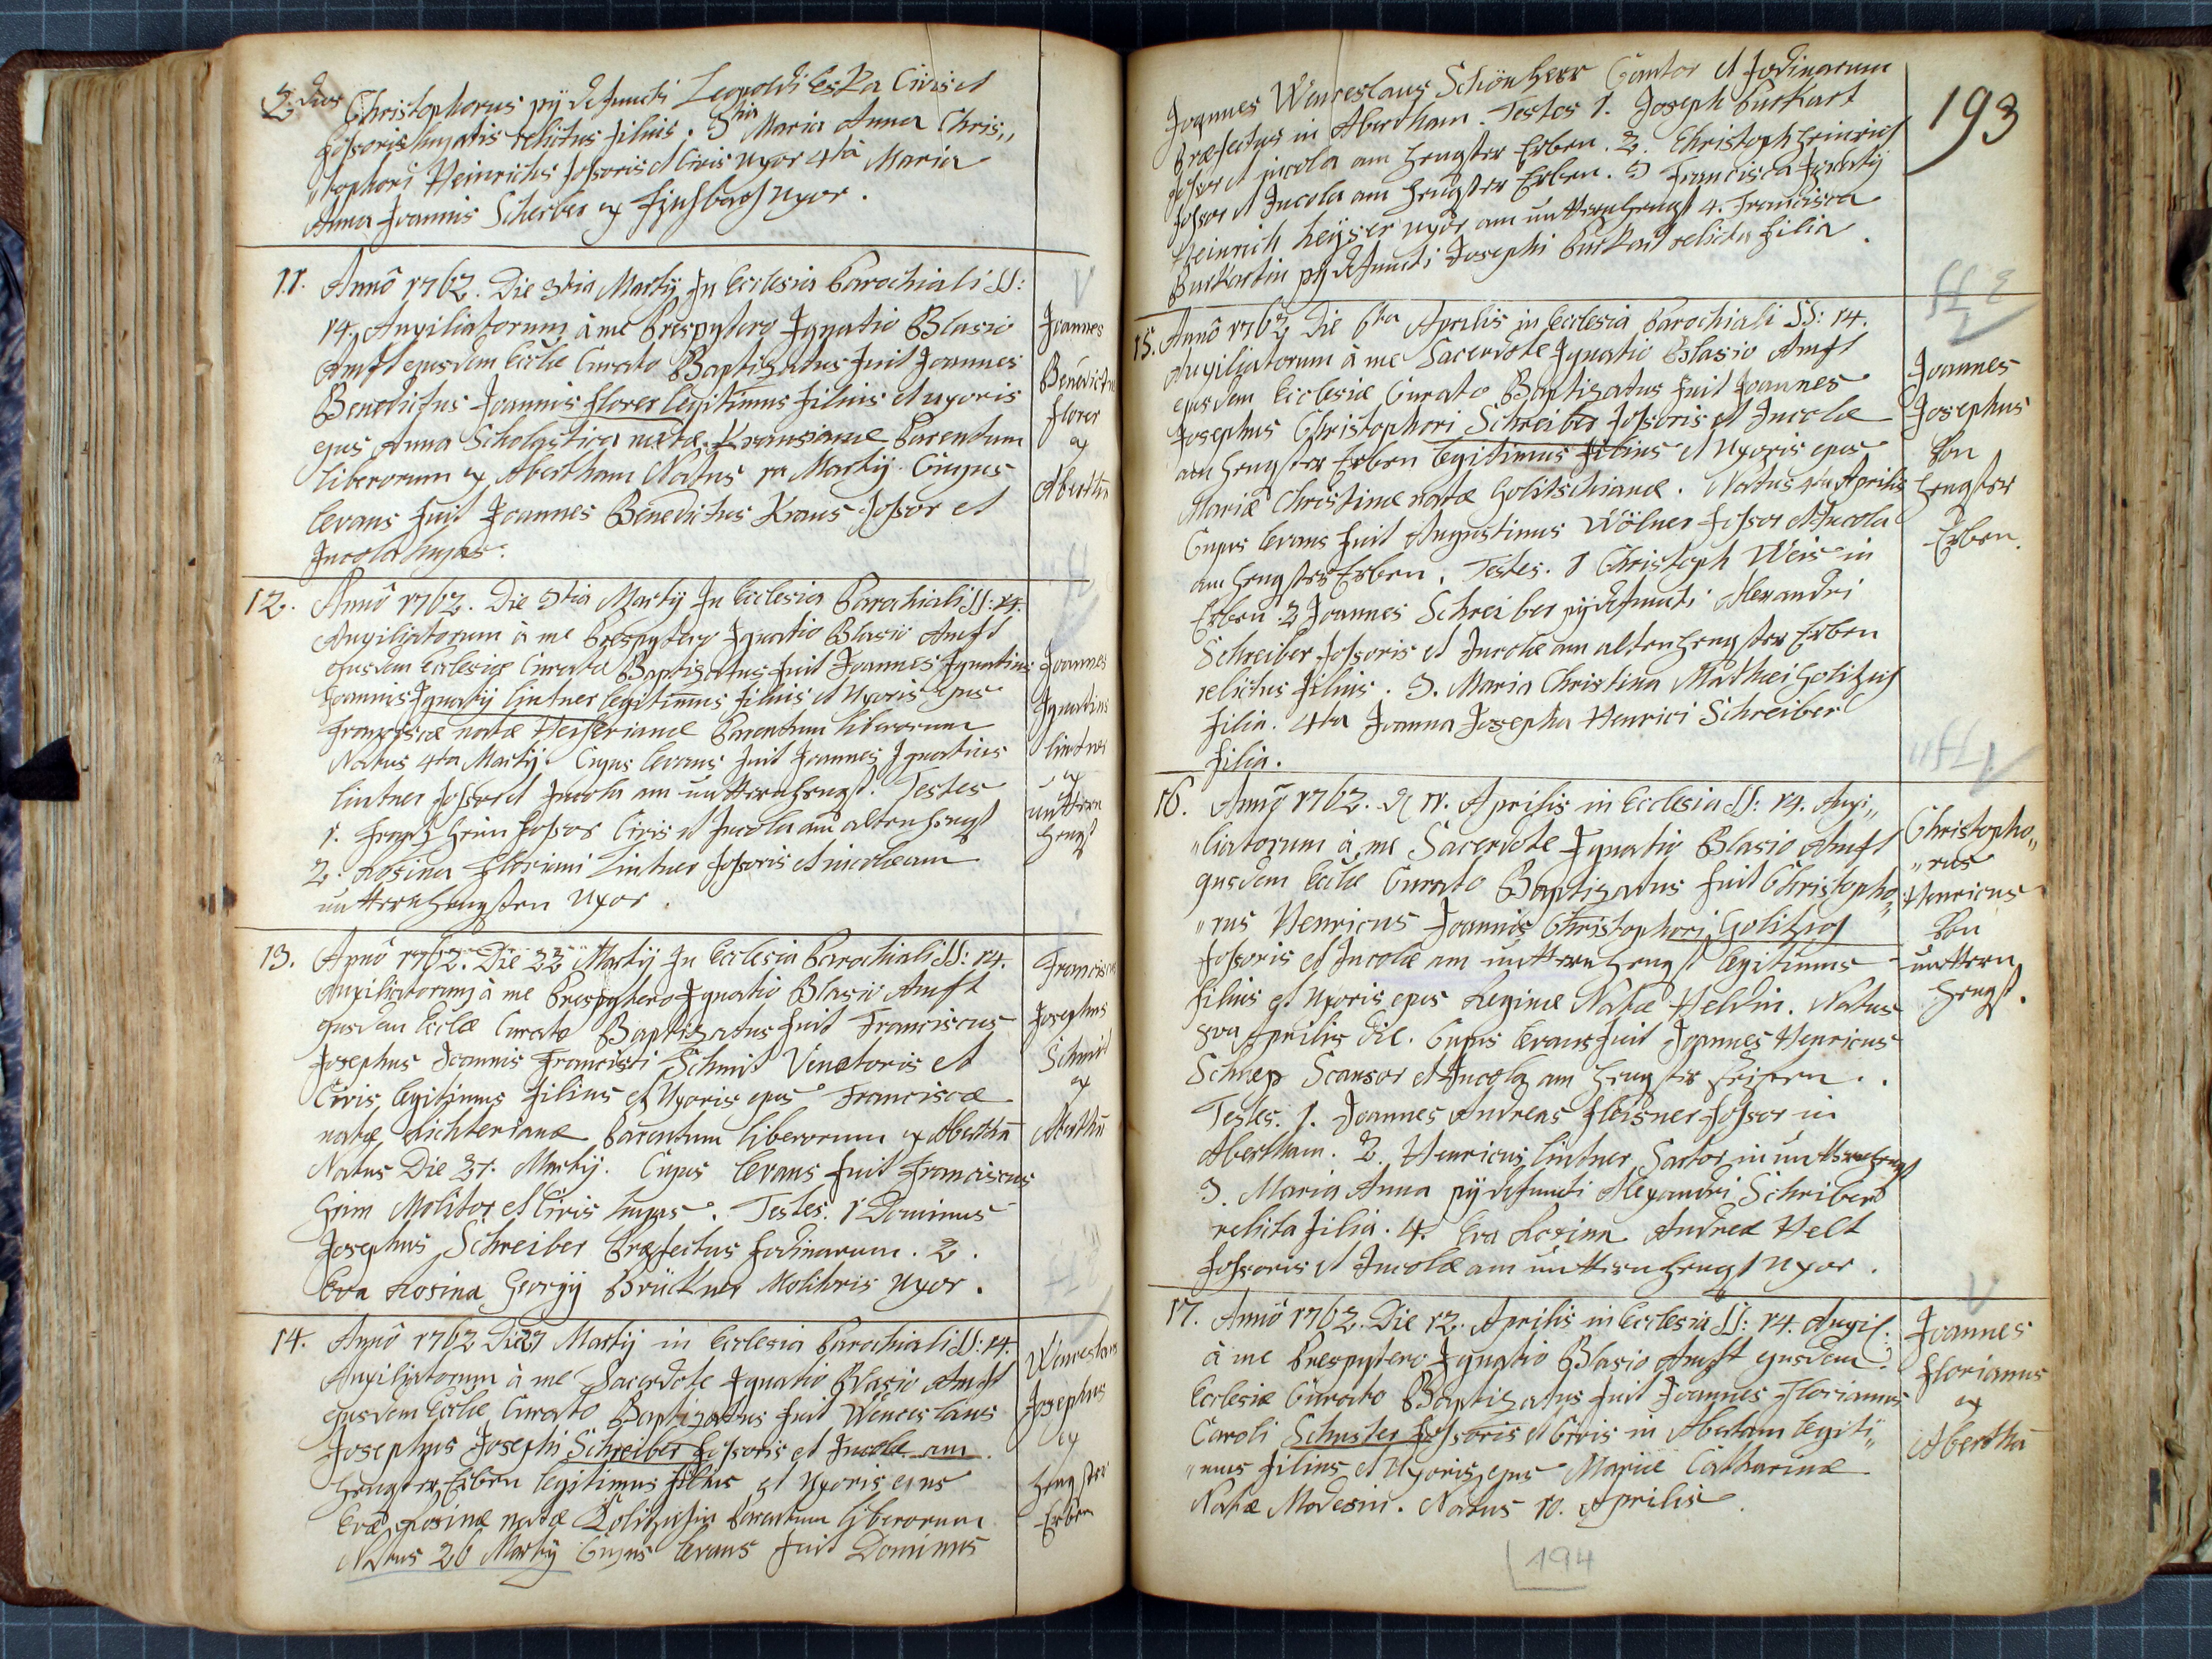 2dus Christophorus pij defuncti Leopoldi Eska Civis et
fossoris hujatis relictus filius. 3tia Maria Anna Chris„
„tophori Heinrichs fossoris et Civis uxor 4ta Maria
Anna Joannis Scherber ex uxor.
11. Annô 1762. Die 3tia Martij In Ecclesia Parochiali SS:
14. Auxiliatorum à me Presbytero Ignatio Blasio
Amst ejusdem Eccliæ Curato Baptizatus fuit Joannes
Benedictus Joannis florer legitimus filius et uxoris
ejus Anna Scholastica natæ Krausianæ Parentum
liberorum ex Abertham Natus Martij. Cujus
levans fuit Joannes Benedictus Kraus fossor et
Incola hujas.
Joannes
Benedictus
florer
ex
Abertham
12. Annô 1762. Die 3tia Martij In Ecclesia Parochiali SS: 14.
Auxiliatorum à me Presbytero Ignatio Blasio Amst
ejusdem Ecclesiæ Curato Baptizatus fuit Joannes Ignatius
Joannis Ignatij lintner legitimus filius et Uxoris ejus
Franciscæ natæ Heiserianæ Parentum liberorum
Natus 4ta Martij. Cujus levans fuit Joannes Ignatius
lintner fossor et Incola am untternhengst. Testes
1. Frantz Heim fossor Civis et Incola am altenhengst
2. Rosina Floriani Lintner fossoris et incolæ am
untternhengsten uxor.
Joannes
Ignatius
lintner
ex
unttern
hengst
13. Annô 1762. Die 22 Martij In Ecclesia Parochiali SS: 14.
Auxiliatorum à me Presbytero Ignatio Blasio Amst
ejusdem Eccliæ Curato Baptizatus fuit Franciscus
Josephus Joannis Francisci Schmit Venatoris et
Civis legitimus filius et Uxoris ejus Franciscæ
natæ Richterianæ Parentum liberorum ex Aberthā
Natus Die 21. Martij. Cujus levans fuit Franciscus
Heim Molitor et Civis hujas. Testes. 1 Dominus
Josephus Schreiber Præfectus fodinarum. 2.
Eva Rosina Georgij Brückner Molitoris uxor.
Franciscus
Josephus
Schmit
ex
Aberthā
14. Annô 1762 Die 27 Martij in Ecclesia Parochiali SS: 14.
Auxiliatorum à me Sacerdote Ignatio Blasio Amst
ejusdem Eccliæ Curato Baptizatus fuit Wenceslaus
Josephus Josephi Schreiber fossoris et Incolæ am
Hengster Erben legitimus filius et Uxoris ejus
Evæ Rosinæ natæ Parentum liberorum
Natus 26 Martij Cujus levans fuit Dominus
Wenceslaus
Josephus
ex
Hengster
Erben
193
Joannes Wenceslaus Schönherr Cantor et fodinarum
Præfectus in Abertham. Testes 1. Joseph Burkart
fossor et incola am Hengster Erben. 2. Christoph Heinrich
fossor et Incola am Hengster Erben. 3 Francisca Ignatij
Heinrich Heyser uxor am untternhengst 4. Francisca
Burkartin pij defuncti Josephi Burkart relicta filia.
15. Annô 1762 Die 6ta Aprilis in Ecclesia Parochiali SS: 14.
Auxiliatorum à me Sacerdote Ignatio Blasio Amst
ejusdem Ecclesiæ Curato Baptizatus fuit Joannes
Josephus Christophori Schreiber fossoris et Incolæ
am Hengster Erben legitimus filius et Uxoris ejus
Mariæ Christinæ natæ Golitschianæ. Natus 4ta Aprilis
Cujus levans fuit Augustinus Wölner fossor et Incola
am Hengster Erben. Testes. 1 Christoph Weis in
Erben. 2 Joannes Schreiber pij defuncti Alexandri
Schreiber fossoris et Incolæ am alten hengster Erben
relictus filius. 3. Maria Christina Mathæi Golitzius
filia. 4ta Joanna Josepha Henrici Schreiber
filia.
Joannes
Josephus
Von
Hengster
Erben.
16. Annô 1762. 11. Aprilis in Ecclesia SS: 14. Auxi„
„liatorum à me Sacerdote Ignatio Blasio Amst
ejusdem Eccliæ Curato Baptizatus fuit Christopho„
„rus Henricus Joannis Christophori
fossoris et Incolæ am untternhengst legitimus
filius et Uxoris ejus Reginæ Natæ Heldin. Natus
Aprilis die. Cujus levans fuit Joannes Henricus
Schnep Scansor et Incola am Hengster.
Testes. 1. Joannes Andreas fleisner fossor in
Abertham. 2. Henricus lintner Sartor in untternhengst
3. Maria Anna pij defuncti Alexandri Schriber
relicta filia. 4. Eva Rosina Andreæ Helt
fossoris et Incolæ am untternhengst uxor.
Christopho„
„rus
Henricus
Von
unttern
hengst.
17. Annô 1762. Die 12. Aprilis in Ecclesia SS: 14. Auxil.
à me Presbytero Ignatio Blasio Amst ejusdem
Ecclesiæ Curato Baptizatus fuit Joannes Florianus
Caroli Schuster fossoris et Civis in Abertam legiti„
„mus filius et Uxoris ejus Mariæ Catharinæ
Natæ Modesin. Natus 10. Aprilis
Joannes
florianus
ex
Aberthā
194